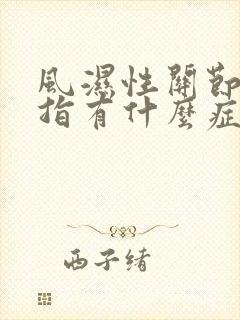 風濕性關節
指有什麼症
西子緒